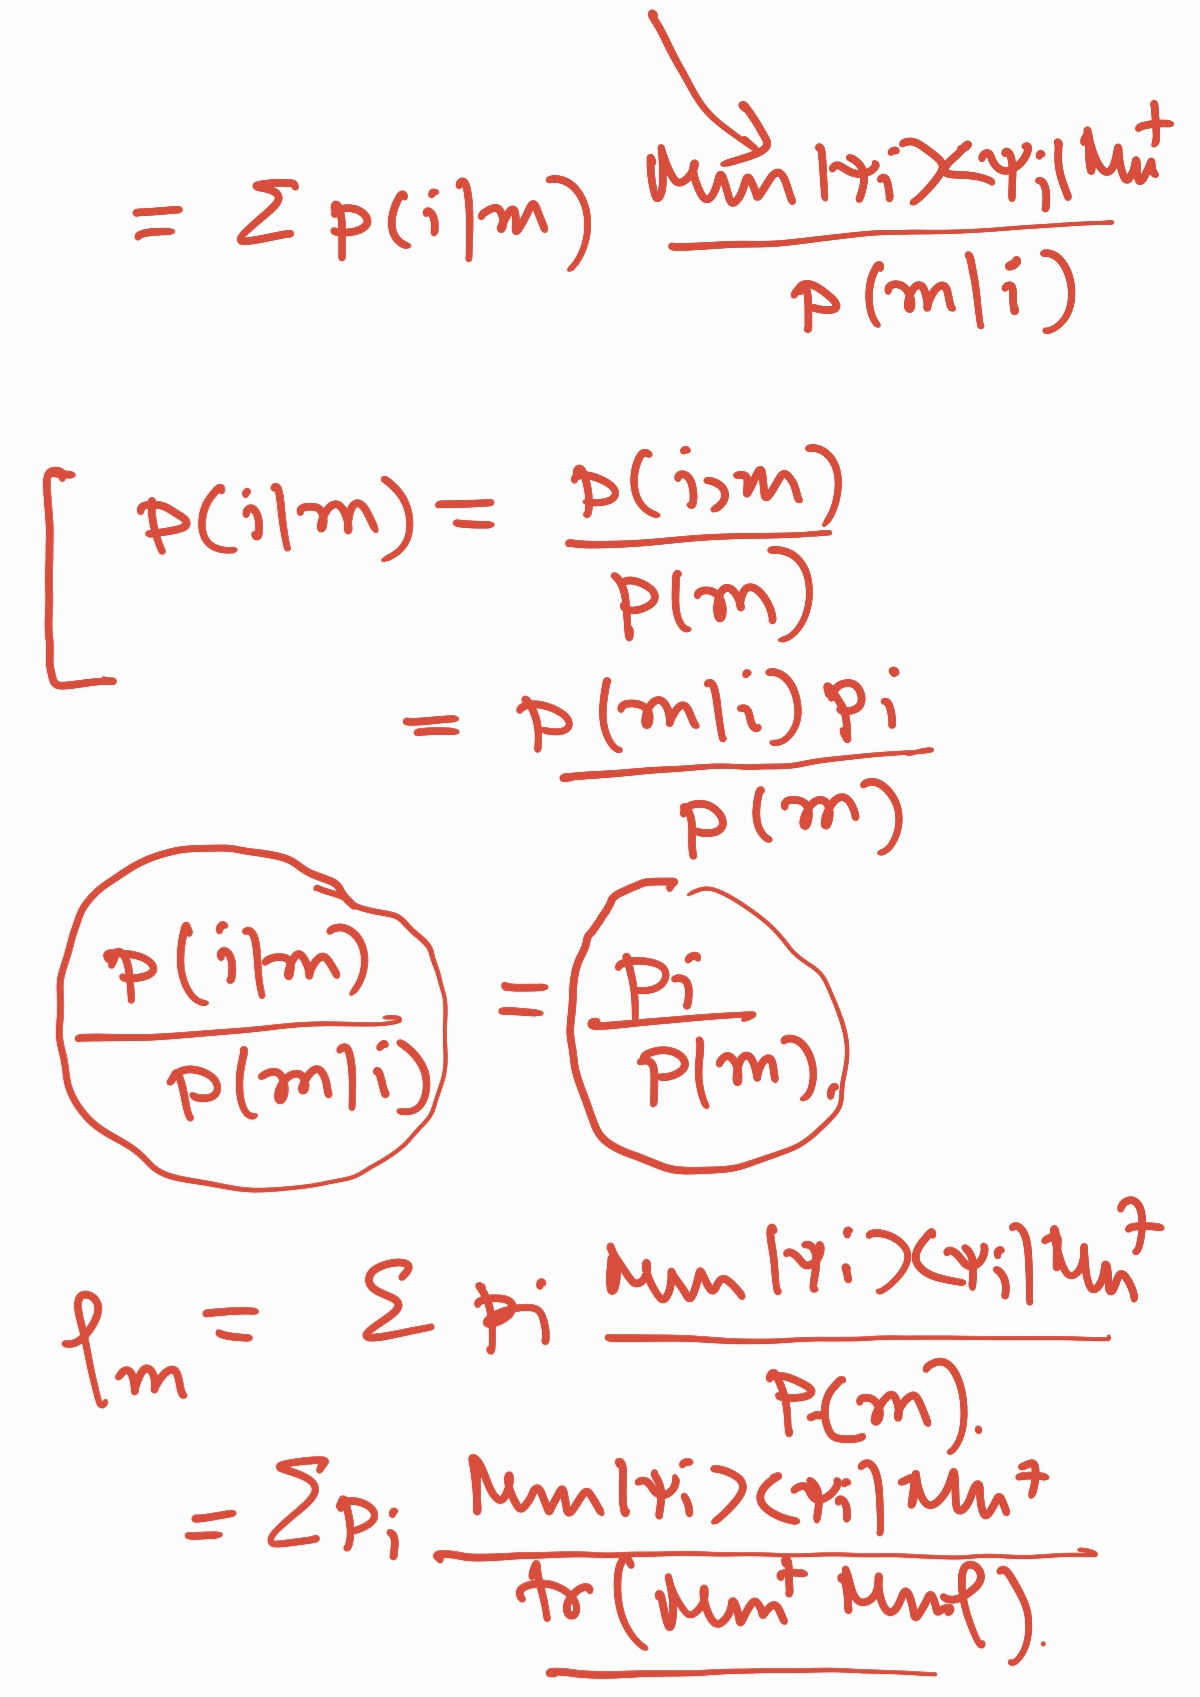 = Σ p(i|m) Mm|ψi><ψi|Mm† / p(m|i)
p(i|m) = p(i,m) / p(m)
= p(m|i) pi / p(m)
p(i|m) / p(m|i) = pi / p(m),
ρm = Σ pi Mm|ψi><ψi|Mm† / p(m).
= Σ pi Mm|ψi><ψi|Mm† / tr(Mm† Mm ρ).